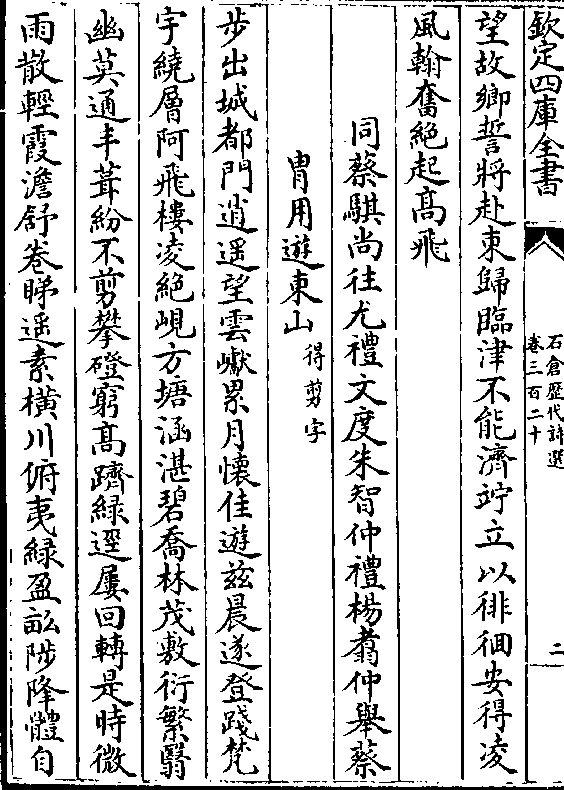 欽定四庫全書
石倉歴代詩選
卷三百二十
二
望故鄉誓將赴東歸臨津不能濟竚立以徘徊安得凌
風翰奮絶起髙飛
同蔡騏尚往尤禮文度朱智仲禮楊翥仲舉蔡
胄用遊東山得剪字
步出城都門逍遥望雲巘累月懷佳遊兹晨遂登踐梵
宇繞層阿飛樓凌絶峴方塘涵湛碧喬林茂敷衍繁翳
幽莫通丰茸紛不剪攀磴窮髙躋緑逕屢回轉是時微
雨散輕霞澹舒卷睇遥素横川俯夷緑盈畝陟降體自